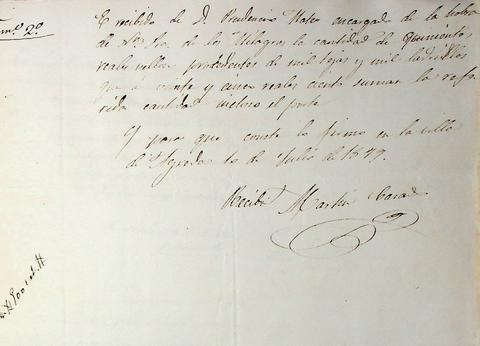 Num.º 2º
E recibido de D. Prudencio Mateo encargad de la hobra
de Ntra. Sra. de los Milagros la cantidad de quinientos
reales vellon procedentes de mil tejas y mil ladrillos
que a veinte y cinco reales ciento suman la refe
rida cantidad incluso el porte
Y para que conste lo firmo en la villa
de Agreda 10 de Julio de 1849.
Recibi Martin
500